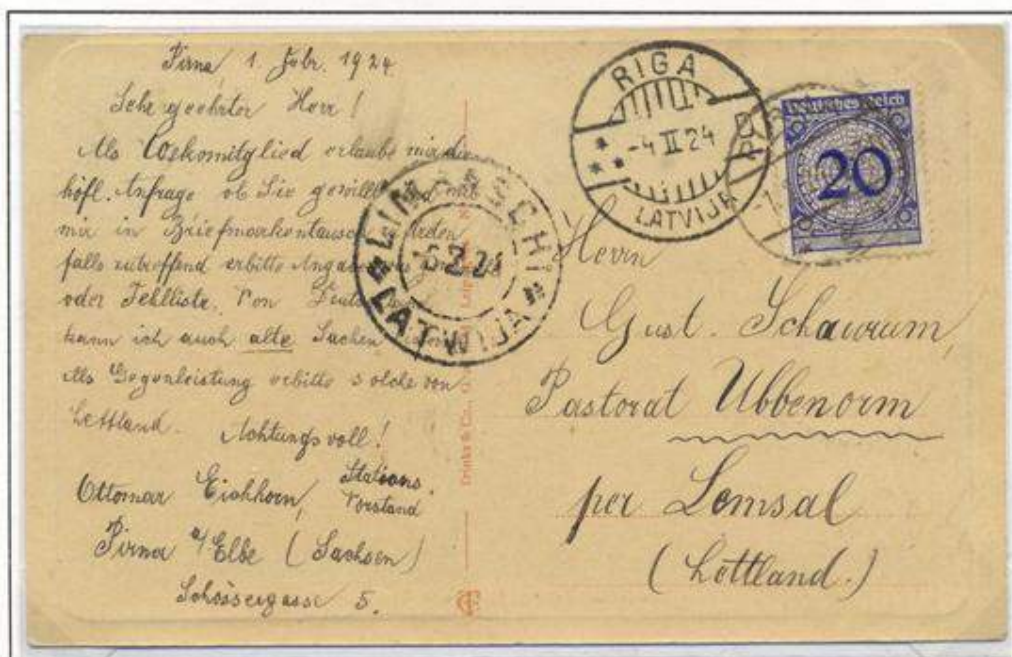 Pirna 1. Febr. 1924.
Sehr geehrter Herr!
Als Coskomitglied erlaube mir die
höfl. Anfrage ob Sie gewillt sind mit
mir in Briefmarkentausch
falls zutreffend erbitte Angabe
oder Fehlliste. Von
kann ich auch alte Sachen
Als Gegenleistung erbitte solche von
Lettland. Achtungsvoll!
Ottomar Eichhorn, Stations.
Vorstand
Pirna a/Elbe (Sachsen)
Schössergasse 5.
RIGA
-4 II 24
LATVIJA
LIMBASCHI
6.2.24
LATWIJA
Deutsches Reich
20
Herrn
Gust. Schawrum,
Pastorat Ubbenorm
per Lemsal
(Lettland.)